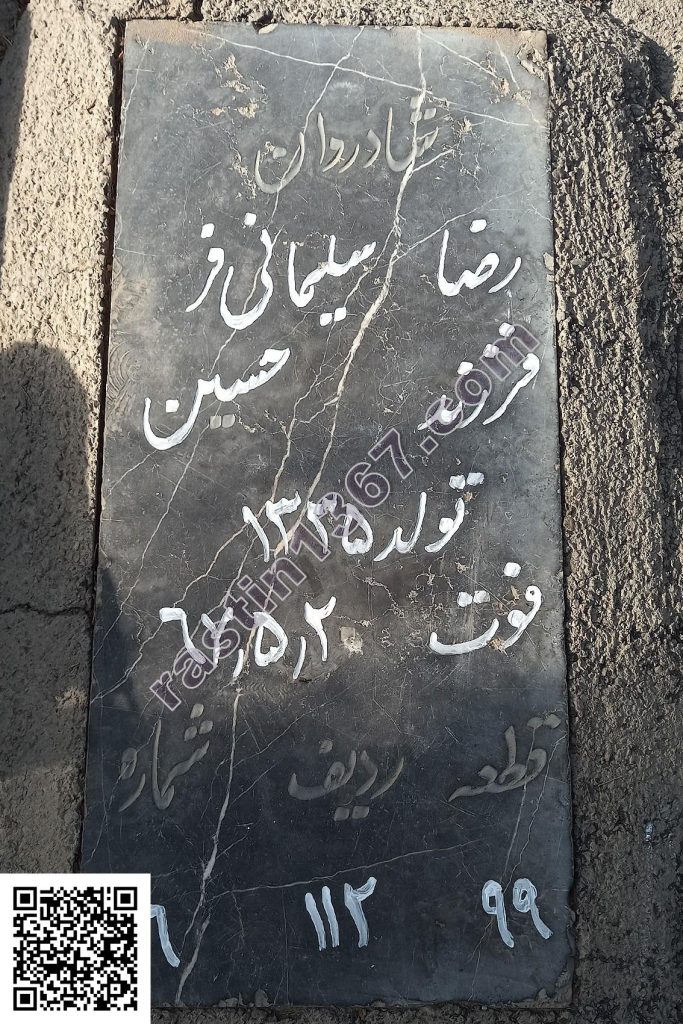 شادروان
رضا سلیمانی فر
فرزند حسین
تولد ۱۳۳۵
فوت ۲ر۵ر۶۲
قطعه ردیف شماره
۹۹ ۱۱۲
rastin1367.com